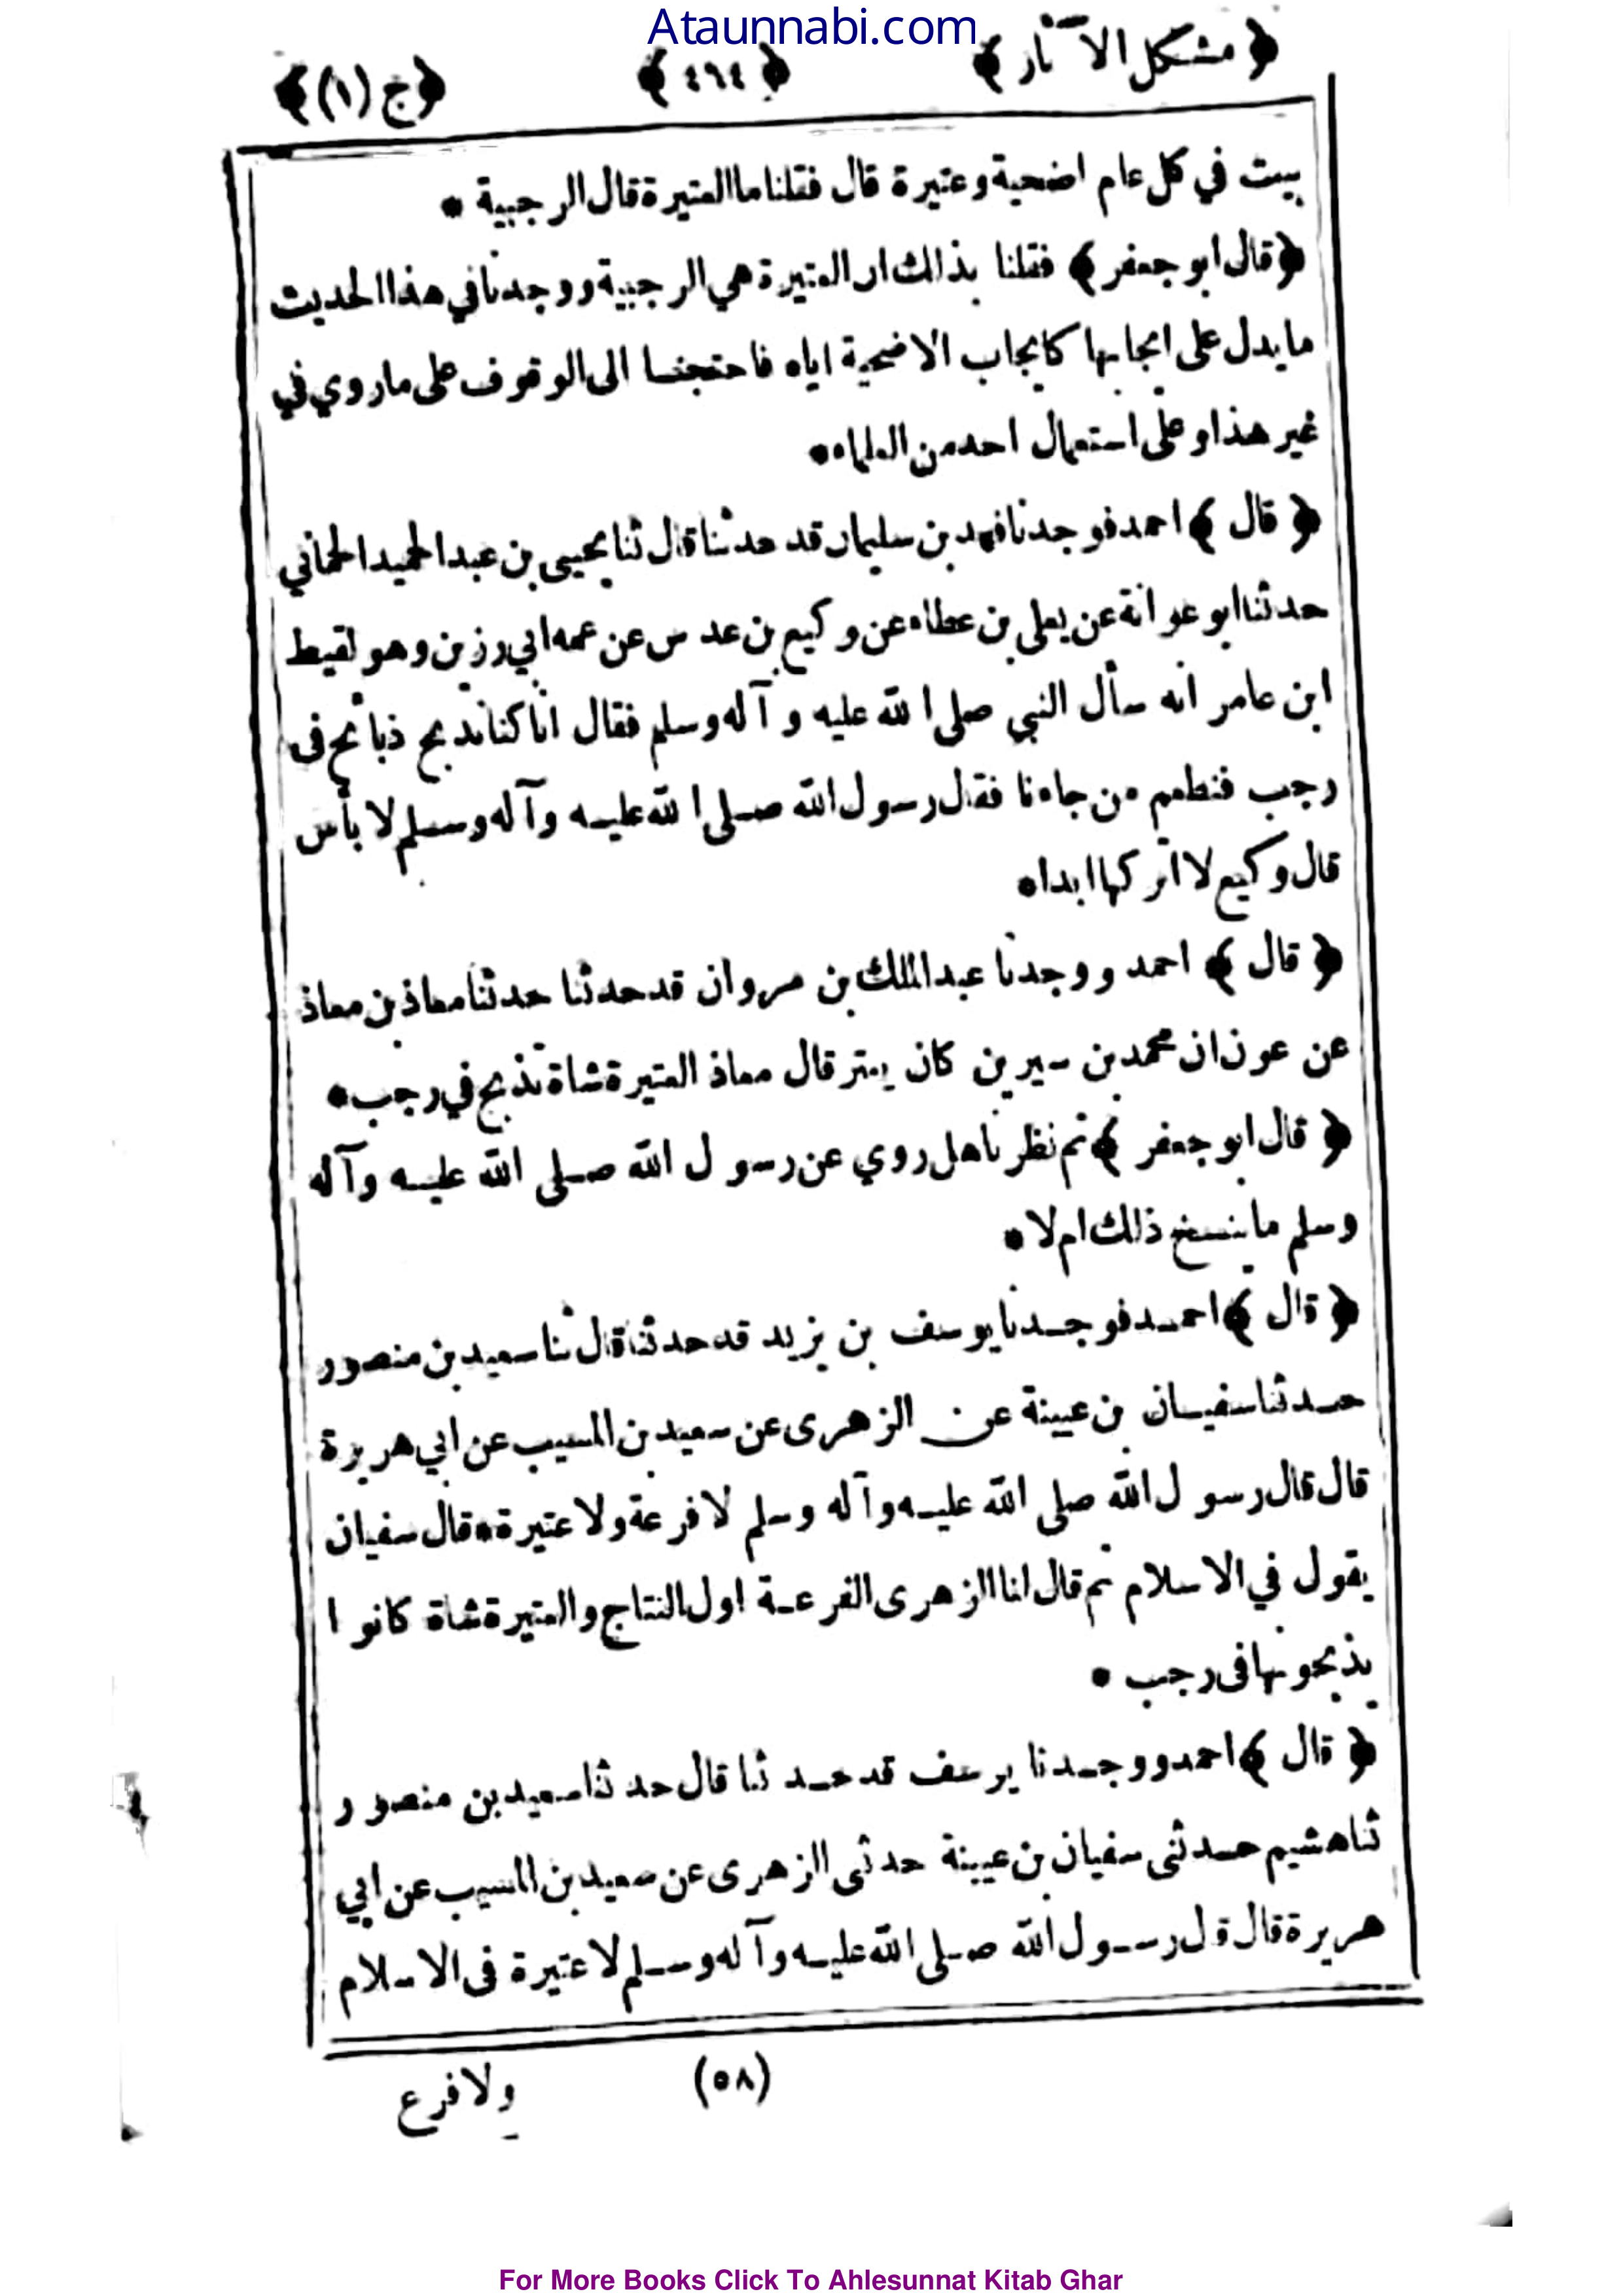 Ataunnabi.com
﴿مشكل الآثار﴾ ﴿٤٦٤﴾ ﴿ج (١)﴾
بيت في كل عام اضحية وعتيرة قال فقلنا ما العتيرة قال الرجبية •
﴿قال ابو جعفر﴾ فقلنا بذالك ان العتيرة هي الرجبية ووجدنا في هذا الحديث
ما يدل على ايجابها كايجاب الاضحية اياه فاحتجنا الى الوقوف على ما روي في
غير هذا وعلى استعمال احد من العلماء •
﴿قال﴾ احمد فوجدنا فهد بن سليمان قد حدثنا قال ثنا يحيى بن عبد الحميد الحماني
حدثنا ابو عوانة عن يعلى بن عطاء عن وكيع بن عدس عن عمه ابي رزين وهو لقيط
ابن عامر انه سأل النبي صلى الله عليه وآله وسلم فقال انا كنا نذبح ذبائح فى
رجب فنطعم من جاءنا فقال رسول الله صلى الله عليه وآله وسلم لا بأس
قال وكيع لا اتركها ابدا •
﴿قال﴾ احمد ووجدنا عبد الملك بن مروان قد حدثنا حدثنا معاذ بن معاذ
عن عون ان محمد بن سيرين كان يعتر قال معاذ العتيرة شاة تذبح في رجب •
﴿قال ابو جعفر﴾ ثم نظرنا هل روي عن رسول الله صلى الله عليه وآله
وسلم ما ينسخ ذلك ام لا •
﴿قال﴾ احمد فوجدنا يوسف بن يزيد قد حدثنا قال ثنا سعيد بن منصور
حدثنا سفيان بن عيينة عن الزهرى عن سعيد بن المسيب عن ابي هريرة
قال قال رسول الله صلى الله عليه وآله وسلم لا فرعة ولا عتيرة • قال سفيان
يقول في الاسلام ثم قال انا الزهرى الفرعة اول النتاج والعتيرة شاة كانوا
يذبحونها فى رجب •
﴿قال﴾ احمد ووجدنا يوسف قد حدثنا قال حدثنا سعيد بن منصور
ثنا هشيم حدثنى سفيان بن عيينة حدثى الزهرى عن سعيد بن المسيب عن ابي
هريرة قال قال رسول الله صلى الله عليه وآله وسلم لا عتيرة فى الاسلام
(٥٨) ولا فرع
For More Books Click To Ahlesunnat Kitab Ghar